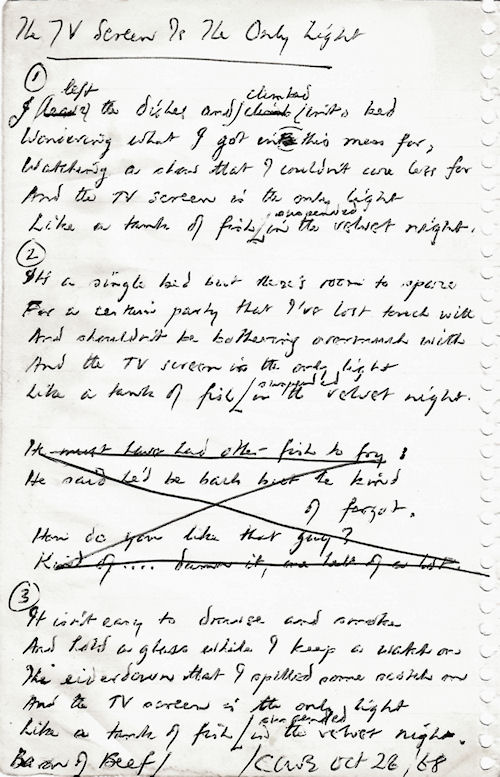 The TV Screen Is The Only Light
1
left climbed
I the dishes and climb into bed
Wondering what I got into this mess for,
Watching a show that I couldn't care less for
And the TV screen is the only light
suspended
Like a tank of fish in the velvet night.
2
It's a single bed but there's room to spare
For a certain party that I've lost touch with
And shouldn't be bothering overmuch with
And the TV screen is the only light
suspended
Like a tank of fish in the velvet night.
He must have had other fish to fry;
He said he'd be back but he kind
of forgot.
How do you like that guy?
Kind of .... damn it, one hell of a lot.
3
It isn't easy to drowse and smoke
And hold a glass while I keep a watch on
The eiderdown that I spilled some scotch on
And the TV screen is the only light
suspended
Like a tank of fish in the velvet night.
Baron of Beef / / Oct 26, '68